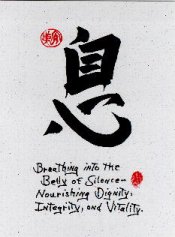 息
Breathing into the
Belly of Silence-
Nourishing Dignity,
Integrity, and Vitality.